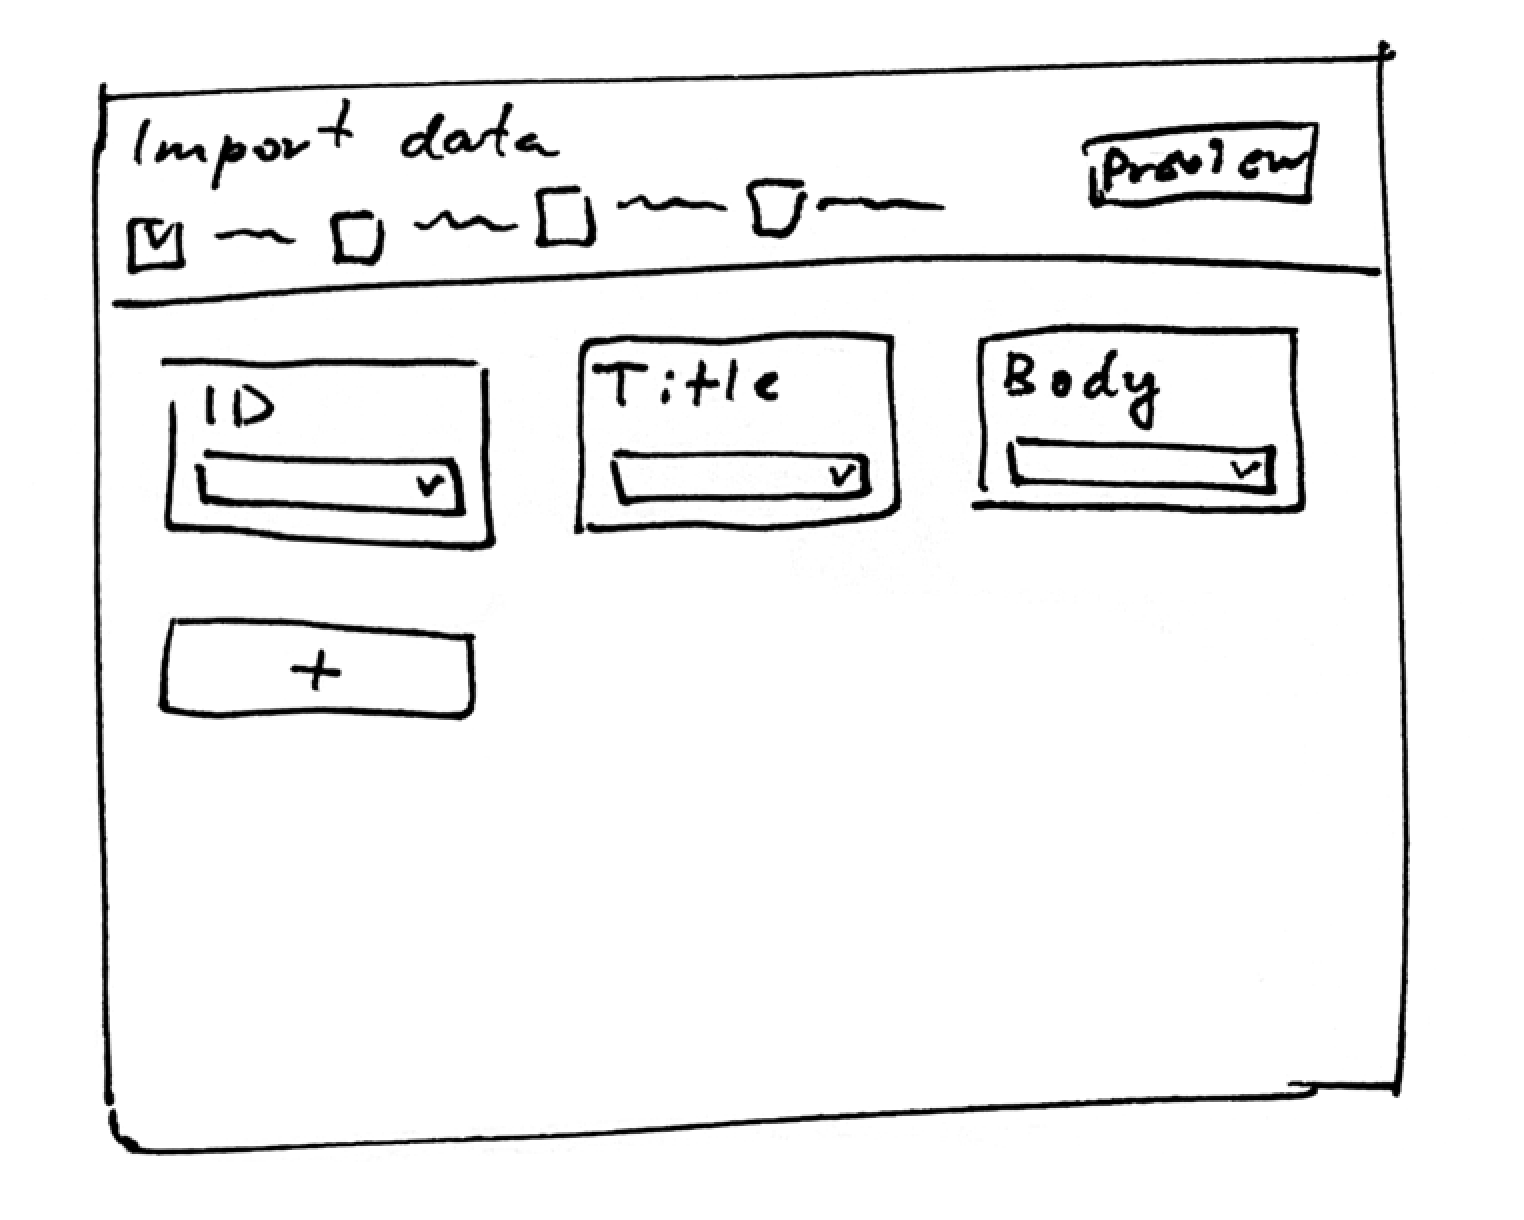 Import data
Preview
ID
Title
Body
+